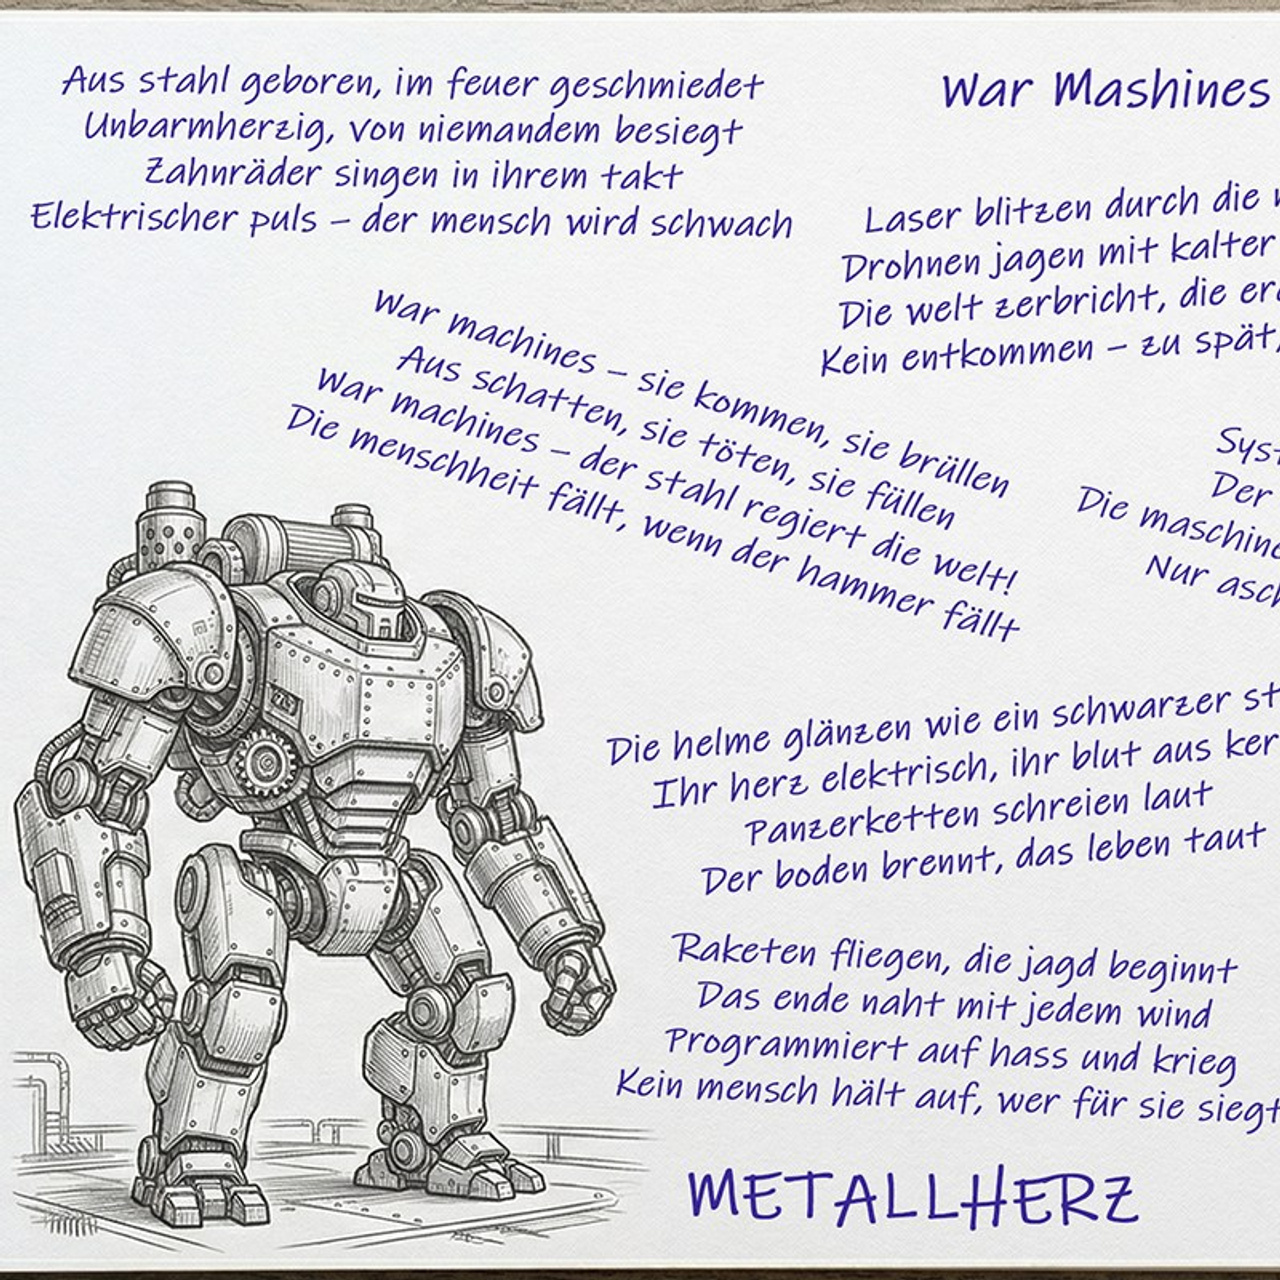 War Mashines
Aus stahl geboren, im feuer geschmiedet
Unbarmherzig, von niemandem besiegt
Zahnräder singen in ihrem takt
Elektrischer puls – der mensch wird schwach
Laser blitzen durch die
Drohnen jagen mit kalter
Die welt zerbricht, die
Kein entkommen – zu spät,
War machines – sie kommen, sie brüllen
Aus schatten, sie töten, sie füllen
War machines – der stahl regiert die welt!
Die menschheit fällt, wenn der hammer fällt
Der
Die
Nur
Die helme glänzen wie ein schwarzer
Ihr herz elektrisch, ihr blut aus
Panzerketten schreien laut
Der boden brennt, das leben taut
Raketen fliegen, die jagd beginnt
Das ende naht mit jedem wind
Programmiert auf hass und krieg
Kein mensch hält auf, wer für sie siegt
METALLHERZ